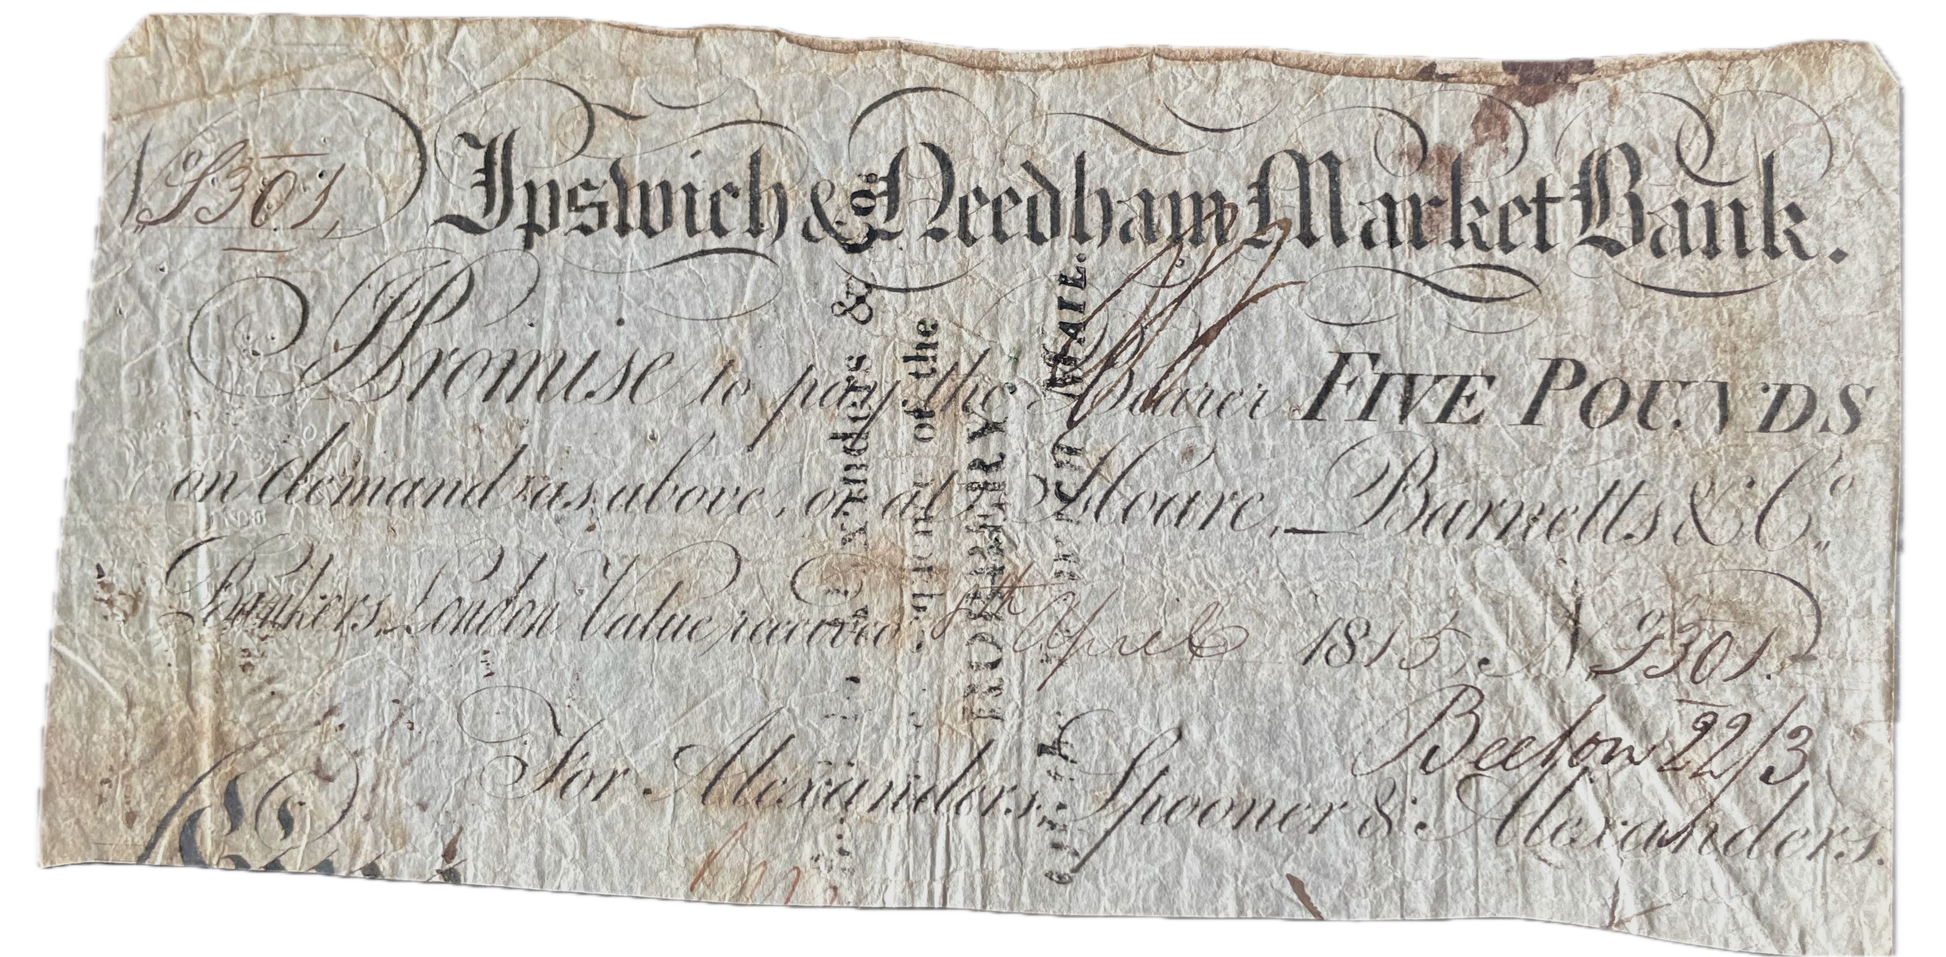 Ipswich & Needham Market Bank.
I Promise to pay the Bearer FIVE POUNDS
on demand as above, or at Hoare, Barnetts & Co.
Bankers, London, Value received 8th April 1815 No
For Alexanders, Spooner & Alexanders.
& Co.
of the
ROBBERY
MAIL.